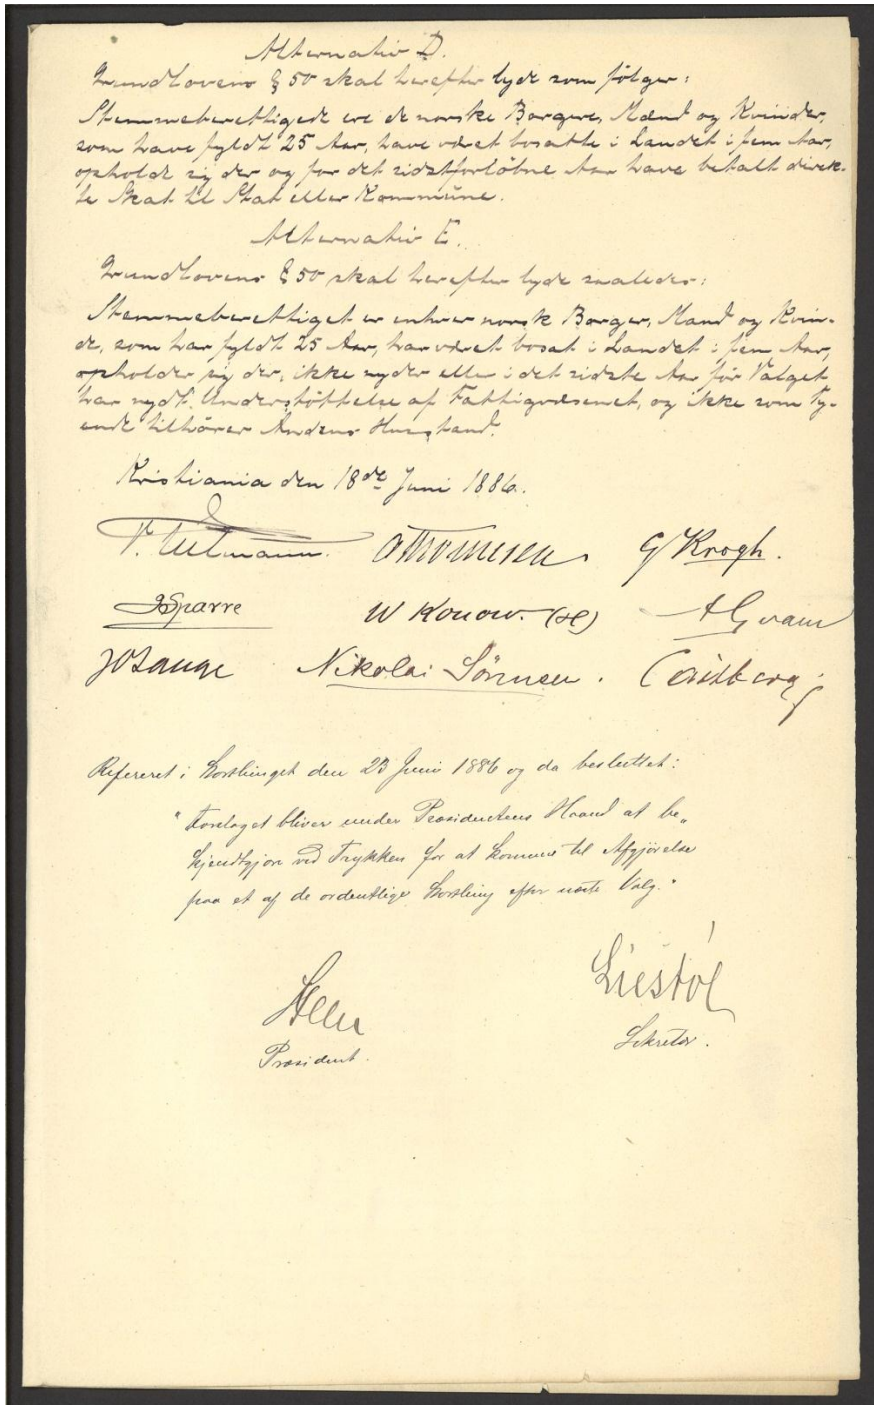 Alternativ D.
Grundlovens § 50 skal herefter lyde som følger:
Stemmeberettigede ere de norske Borgere, Mænd og Kvinder,
som have fyldt 25 Aar, have været bosatte i Landet i fem Aar,
opholde sig der og for det sidstforløbne Aar have betalt direk-
te Skat til Stat eller Kommune.
Alternativ E.
Grundlovens § 50 skal herefter lyde saaledes:
Stemmeberettiget er enhver norsk Borger, Mand og Kvin-
de, som har fyldt 25 Aar, har været bosat i Landet i fem Aar,
opholder sig der, ikke nyder eller i det sidste Aar før Valget
har nydt Understøttelse af Fattigvæsenet, og ikke som Ty-
ende tilhører Andens Husstand.
Kristiania den 18de Juni 1886.
V. Ullmann. O Thommesen G Krogh.
Sparre W Konow. (H) A Qvam
Nikolai Sørensen. Castberg
Refereret i Storthinget den 23 Juni 1886 og da besluttet:
"Forslaget bliver under Præsidentens Haand at be„
kjendtgjøre ved Trykken for at komme til Afgjørelse
paa et af de ordentlige Storthing efter næste Valg."
Steen Liestøl
Præsident. Sekretær.